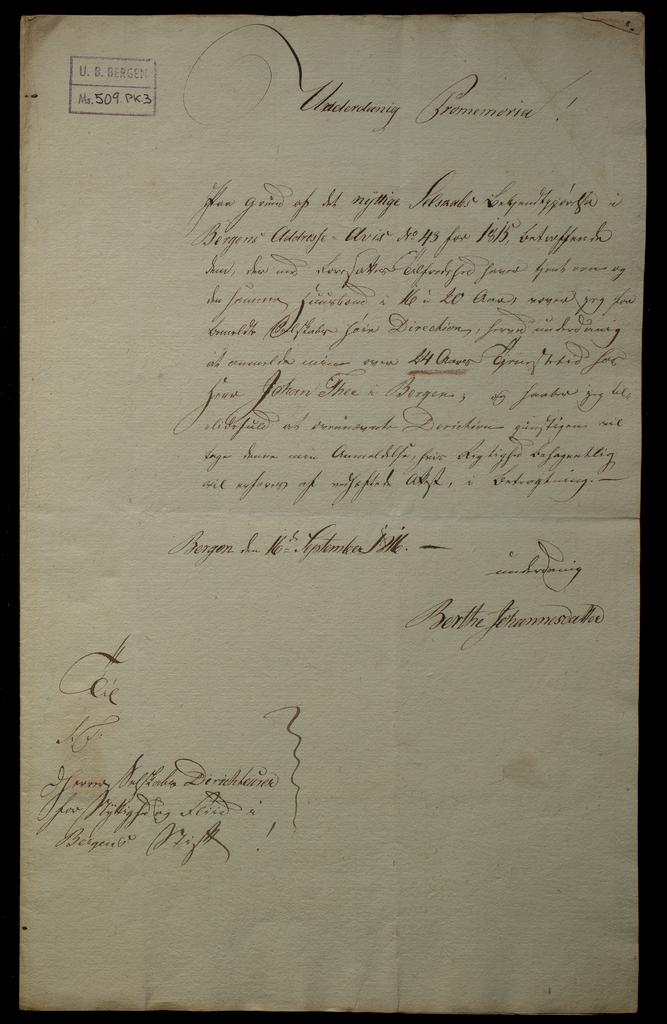 U. B. BERGEN
Ms. 509. PK3
Underdanig Promemoria!
Paa Grund af det nyttige Selskabs Bekjendtgjørelse i
Bergens Addresse-Avis No 43 for 1815, betræffende
dem, der med Forsatters Tilfredshed haver tjent een og
den samme Huusbond i 16 à 20 Aar, vover jeg for
bemeldte Selskabs høie Direction, herved underdanig
at anmelde min over 24 Aars Tjenestetid hos
Herr Johan Thee i Bergen; og haaber jeg til-
lidsfuld at ovennævnte Direction gunstigen vil
tage denne min Anmeldelse, hvis Rigtighed behagentlig
vil erfares af vedheftede Attest, i Betragtning. —
Bergen den 16de September 1816. —
underdanig
Berthe Johannesdatter
Til
Dherrer Selskabs Directeurer
for Nyttighed og Fliid i
Bergens Stift!